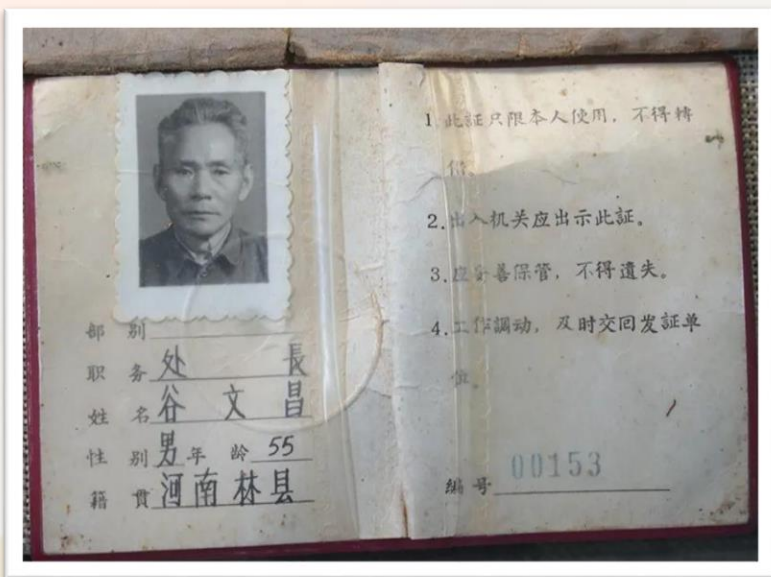 部 别
职 务 处 長
姓 名 谷 文 昌
性 别 男 年 龄 55
籍 贯 河南林县
1. 此証只限本人使用，不得转
借。
2. 出入机关应出示此証。
3. 应妥善保管，不得遺失。
4. 工作調动，及时交回发証单
位。
编号 00153